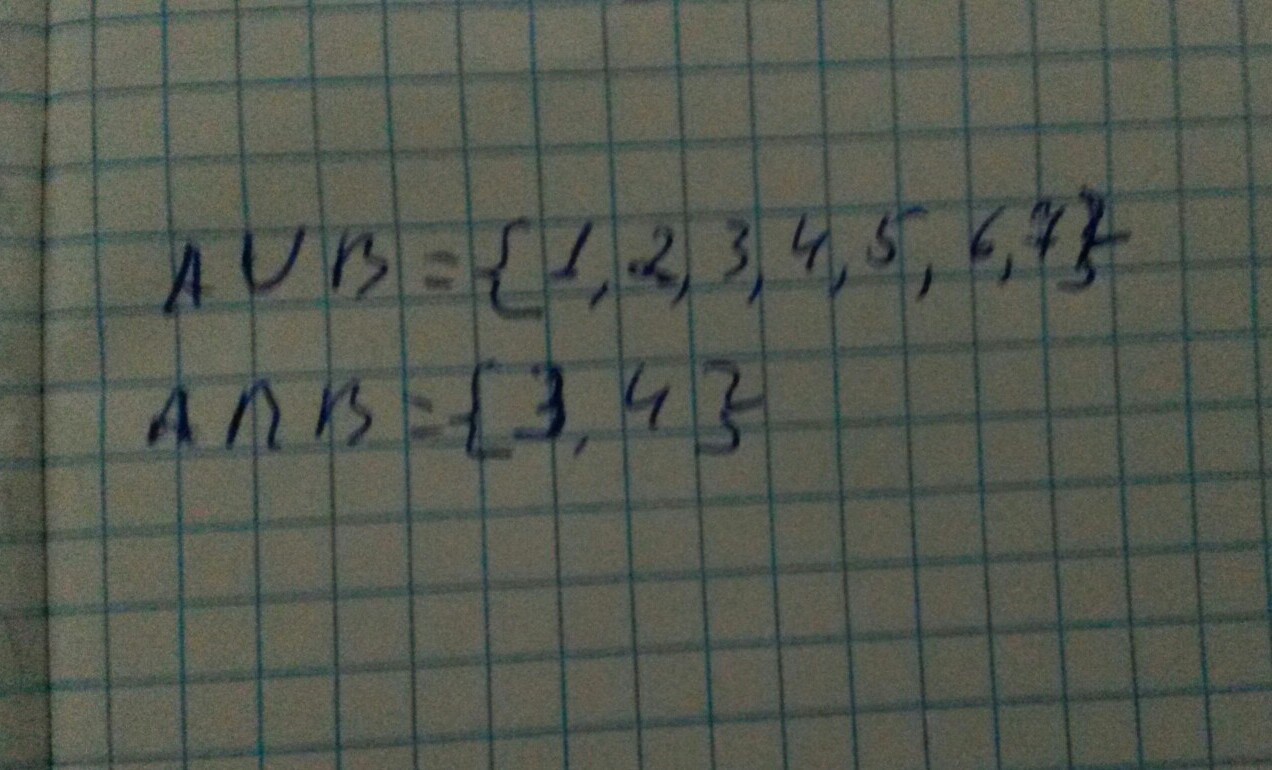 A∪B={1,2,3,4,5,6,7}
A∩B={3,4}